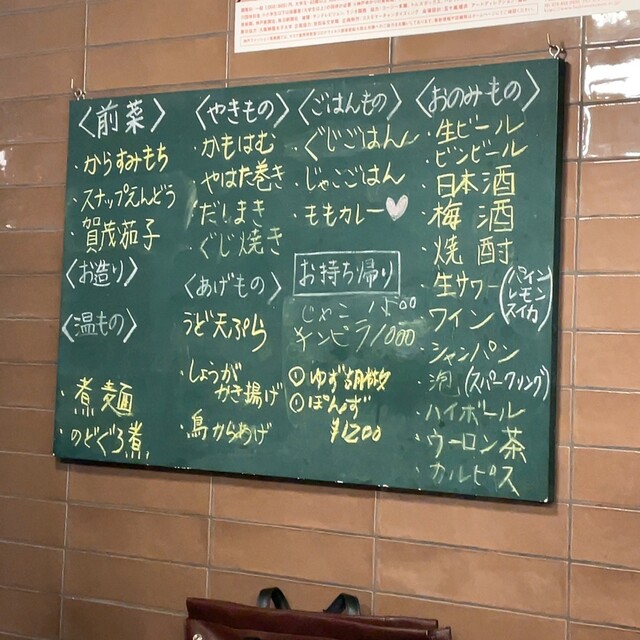 〈前菜〉
・からすみもち
・スナップえんどう
・賀茂茄子
〈お造り〉
〈温もの〉
・煮麺
・のどぐろ煮
〈やきもの〉
・かもはむ
・やはた巻き
・だしまき
・ぐじ焼き
〈あげもの〉
・うど天ぷら
・しょうが
かき揚げ
・鳥からあげ
〈ごはんもの〉
・ぐじごはん
・じゃこごはん
・ももカレー♥
お持ち帰り
じゃこ
キンピラ 1000
・ゆず胡椒
・ぽんず
¥1200
〈おのみもの〉
・生ビール
・ビンビール
・日本酒
・梅酒
・焼酎
・生サワー(パイン
レモン
スイカ)
・ワイン
・シャンパン
・泡(スパークリング)
・ハイボール
・ウーロン茶
・カルピス